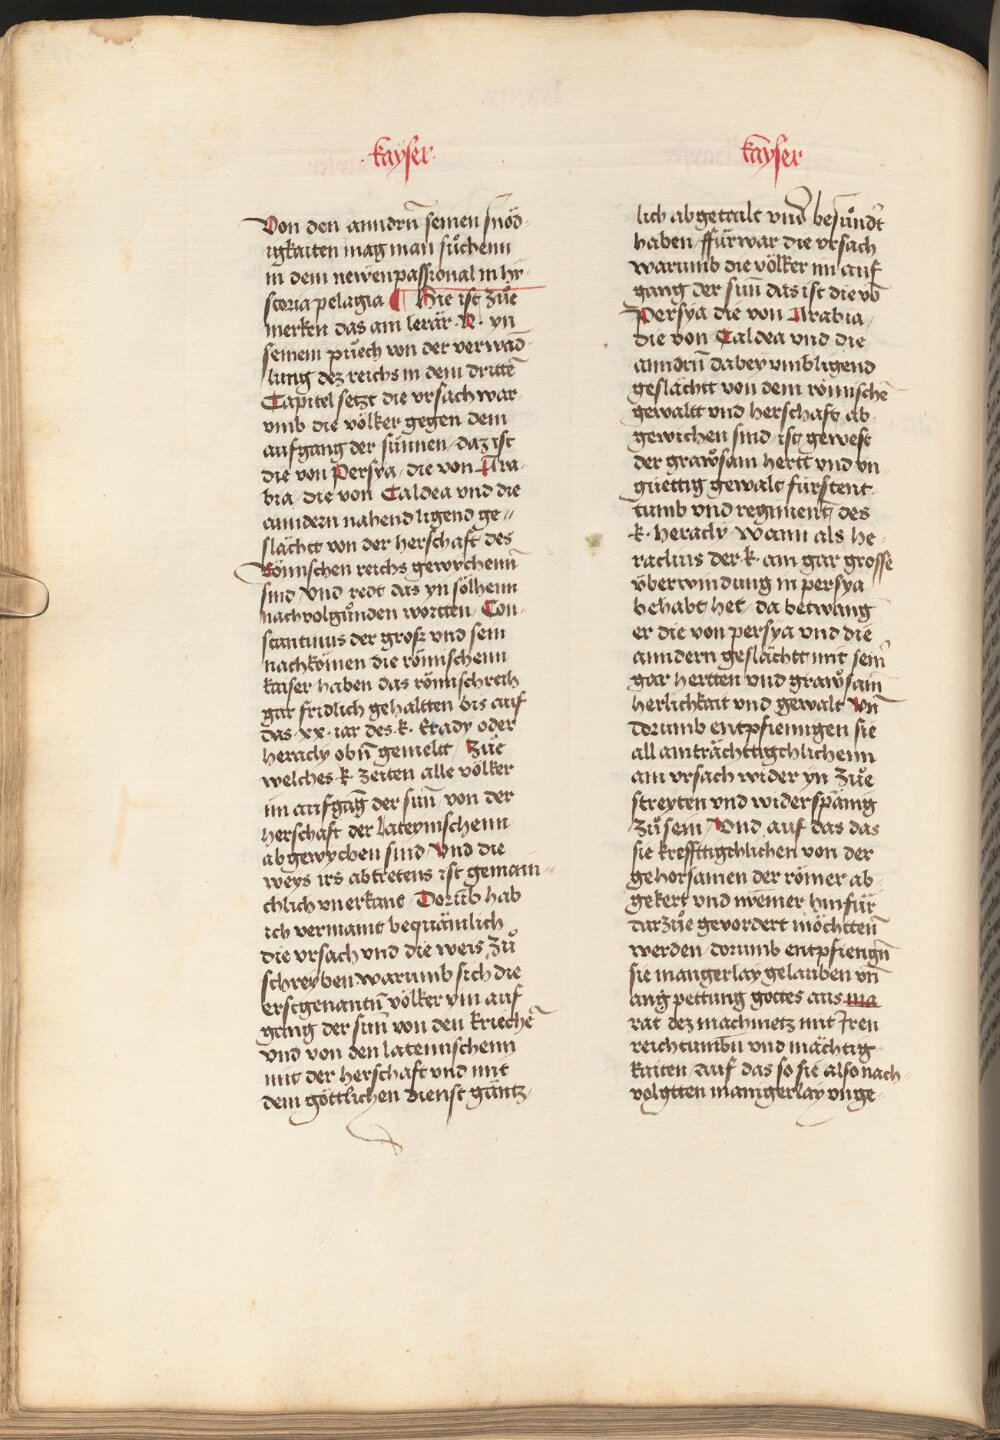 kayser
Von den anndrn̄ seinen snöd
igkaiten mag man sůchenn
in dem newen passional in hy
storia pelagia ¶ Hie ist zůe
merken das ain lerär ·A· yn
seinem půech von der verwād
lung dez reichs in dem drittē
Capitel setzt die vrsach war
vmb die völker gegen dem
aufgang der sunnen / daz ist
die von Persya / die von Ara
bia / die von Caldea vnd die
anndern nahend ligend ge〃
slächtt von der herschaft des
Römischen reichs gewychenn̄
sind Vnd redt das yn sölhenn
nachvolgůnden wortten / Con
stantinus der groß vnd sein
nachkömen die römischenn
kaiser haben das römisch reich
gar fridlich gehaltten bis auf
das ·xx· iar des ·k· Erady oder
heracly obn̄ gemelt / Zůe
welches ·k· zeiten alle völker
im aufgāg der sun̄ von der
herschaft der lateynischenn
abgewychen sind Vnd die
weys irs abtretens ist gemain〃
chlich vnerkant / Dorūb hab
ich vermaint bequämlich
die vrsach vnd die weis zů
schreyben warumb sich die
erstgenantn̄ völker ym auf
gang der sun̄ von den kriechē
vnd von den lateinischenn
mit der herschaft vnd mit
dem göttlichen dienst gäntz
kayser
lich abgetailt vnd besůndt
haben / ffürwar die vrsach
warumb die völker im auf
gang der sun̄ das ist die vō
Persya die von Arabia /
die von Caldea vnd die
anndrn̄ dabey vmbligend
geslächtt von dem römischē
gewaltt vnd herschaft ab
gewichen sind / ist gewest
der grawsam hertt vnd vn
güettig gewalt fürstent
tumb vnd regiment des
·k· heracly Wann als he
raclius der ·k· ain gar grosse
vberwindung in persya
behabt het / da betwang
er die von persya vnd die
anndern geslächtt mit sein̄
gar hertten vnd grawsam
herlichkait vnd gewalt Vn̄
dorumb entpfienngen sie
all ainträchttigchlichenn
ain vrsach wider yn zůe
streyten vnd widerspänig
zů sein / Vnd auf das das
sie krefftigchlichen von der
gehorsamen der römer ab
gekert vnd nÿemer hinfür
darzůe gevordert möchttenn̄
werden / dorumb entpfiengn̄
sie mangerlay gelauben vn̄
ang pettung gottes aus ma
rat dez machmetz mit Iren
reichtumbn̄ vnd mächtig
kaiten / auf das so sie also nach
volgtten manigerlay vnge